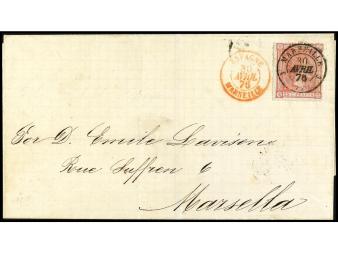 ESPAGNE
30
AVRIL
76
MARSEILLE
MARSEILLE
30
AVRIL
76
Por D. Emile Davison
Rue Suffren 6
Marsella